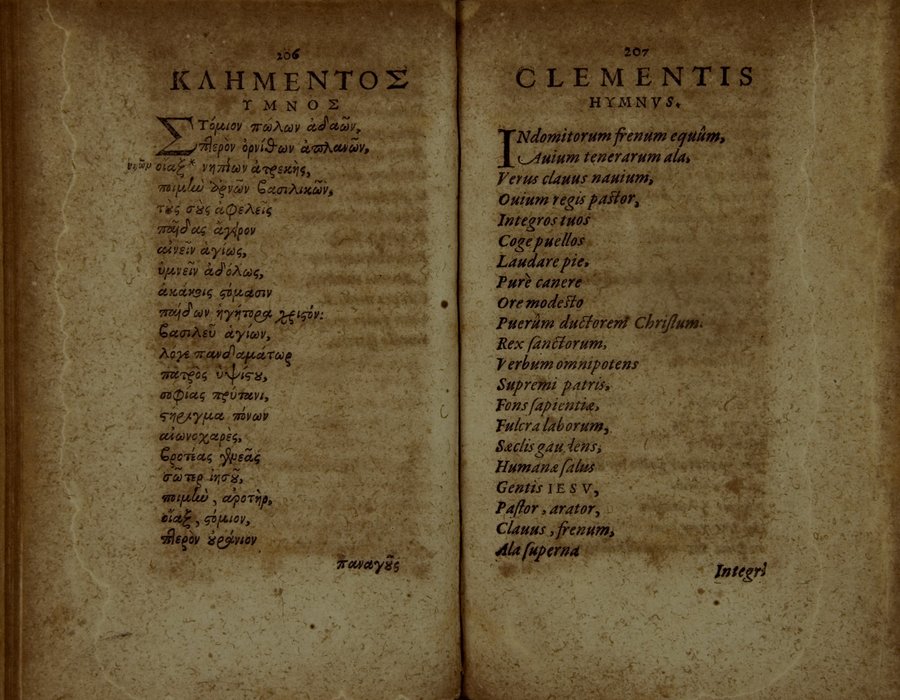 206
ΚΛΗΜΕΝΤΟΣ
ΥΜΝΟΣ
Στόμιον πώλων ἀδαῶν,
πτερὸν ὀρνίθων ἀπλανῶν,
οἴαξ* νηπίων ἀτρεκὴς,
ποιμὴν ἀρνῶν βασιλικῶν,
τοὺς σοὺς ἀφελεῖς
παῖδας ἄγειρον
αἰνεῖν ἁγίως,
ὑμνεῖν ἀδόλως,
ἀκάκοις στόμασιν
παίδων ἡγήτορα χριστόν:
βασιλεῦ ἁγίων,
λόγε πανδαμάτωρ
πατρὸς ὑψίστου,
σοφίας πρύτανι,
στήριγμα πόνων
αἰωνοχαρὲς,
βροτέας γενεᾶς
σῶτερ ἰησοῦ,
ποιμὴν, ἀροτὴρ,
οἴαξ, στόμιον,
πτερὸν οὐράνιον
παναγοῦς
207
CLEMENTIS
HYMNVS.
INdomitorum frenum equûm,
Auium tenerarum ala,
Verus clauus nauium,
Ouium regis pastor,
Integros tuos
Coge puellos
Laudare pie,
Purè canere
Ore modesto
Puerûm ductorem Christum.
Rex sanctorum,
Verbum omnipotens
Supremi patris,
Fons sapientiæ,
Fulcra laborum,
Sæclis gaudens,
Humanæ salus
Gentis IESV,
Pastor, arator,
Clauus, frenum,
Ala superna
Integri